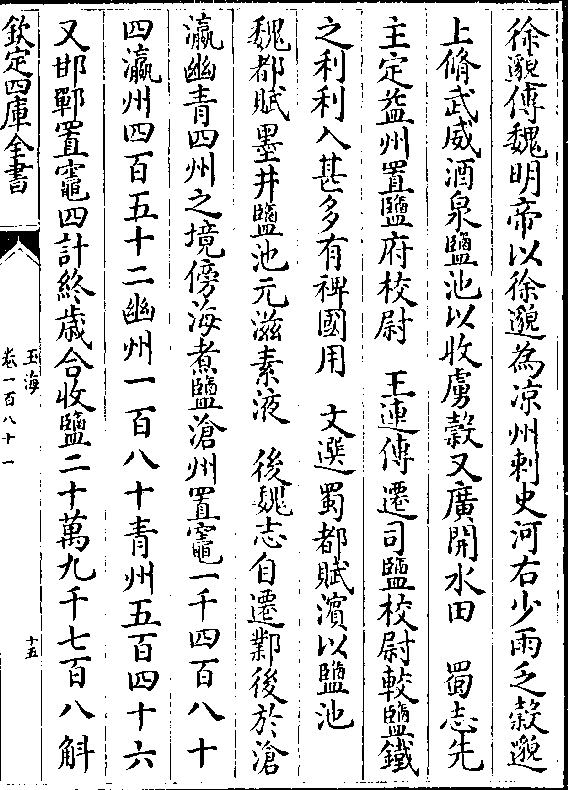 徐邈傳魏明帝以徐邈為凉州刺史河右少雨乏榖邈
上脩武威酒泉鹽池以收虜榖又廣開水田　蜀志先
主定益州置鹽府校尉　王連傳遷司鹽校尉較鹽鐵
之利利入甚多有裨國用　文選蜀都賦濵以鹽池
魏都賦墨井鹽池元滋素液　後魏志自遷鄴後於滄
瀛幽青四州之境傍海煮鹽滄州置竈一千四百八十
四瀛州四百五十二幽州一百八十青州五百四十六
又邯鄲置竈四計終歲合收鹽二十萬九千七百八斛
欽定四庫全書
玉海
卷一百八十一
十五